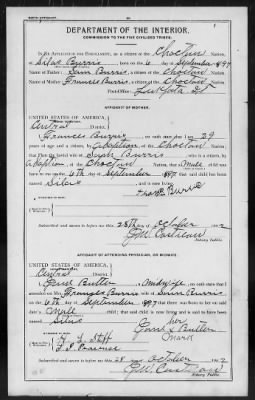 DEPARTMENT OF THE INTERIOR.
COMMISSION TO THE FIVE CIVILIZED TRIBES.
IN RE APPLICATION FOR ENROLLMENT, as a citizen of the Choctaw Nation,
of Silas Burris, born on the 6 day of September 1897
Name of Father: Sam Burris a citizen of the Choctaw Nation.
Name of Mother: Frances Burris a citizen of the Choctaw Nation.
AFFIDAVIT OF MOTHER.
UNITED STATES OF AMERICA,
Central District.
I, Frances Burris, on oath state that I am 29
years of age and a citizen, by adoption, of the Choctaw Nation;
that I am the lawful wife of Sam Burris, who is a citizen, by
of the Choctaw Nation; that a male child was
born to me on 6th day of September 1897, that said child has been named
Silas, and is now living.
Subscribed and sworn to before me this 28th day of October, 1902
Notary Public.
AFFIDAVIT OF ATTENDING PHYSICIAN, OR MIDWIFE.
UNITED STATES OF AMERICA,
Central District.
I, Butler, a midwife, on oath state that I
attended on Mrs. Frances Burris, wife of Sam Burris
on the 6th day of September, 1897; that there was born to her on said
date a male child; that said child is now living and is said to have been
named Silas
her
Butler
mark
Subscribed and sworn to before me this 28 day of October, 1902
Notary Public.